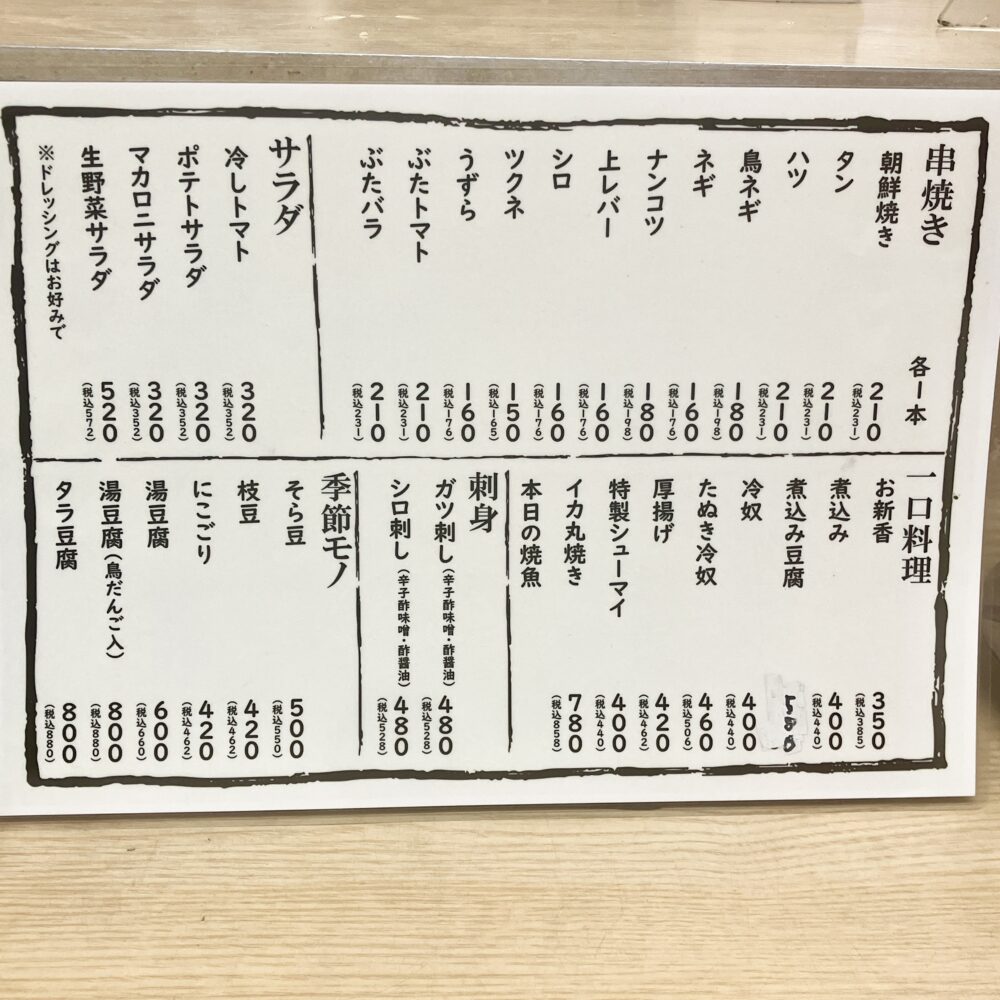 串焼き 各一本
朝鮮焼き 210 (税込231)
タン 210 (税込231)
ハツ 210 (税込231)
鳥ネギ 180 (税込198)
ネギ 160 (税込176)
ナンコツ 180 (税込198)
上レバー 160 (税込176)
シロ 160 (税込176)
ツクネ 150 (税込165)
うずら 160 (税込176)
ぶたトマト 210 (税込231)
ぶたバラ 210 (税込231)
サラダ
冷しトマト 320 (税込352)
ポテトサラダ 320 (税込352)
マカロニサラダ 320 (税込352)
生野菜サラダ 520 (税込572)
※ドレッシングはお好みで
一口料理
お新香 350 (税込385)
煮込み 400 (税込440)
煮込み豆腐 580
冷奴 400 (税込440)
たぬき冷奴 460 (税込506)
厚揚げ 420 (税込462)
特製シューマイ 400 (税込440)
イカ丸焼き 780 (税込858)
本日の焼魚
刺身
ガツ刺し(辛子酢味噌・酢醤油) 480 (税込528)
シロ刺し(辛子酢味噌・酢醤油) 480 (税込528)
季節モノ
そら豆 500 (税込550)
枝豆 420 (税込462)
にこごり 420 (税込462)
湯豆腐 600 (税込660)
湯豆腐(鳥だんご入) 800 (税込880)
タラ豆腐 800 (税込880)